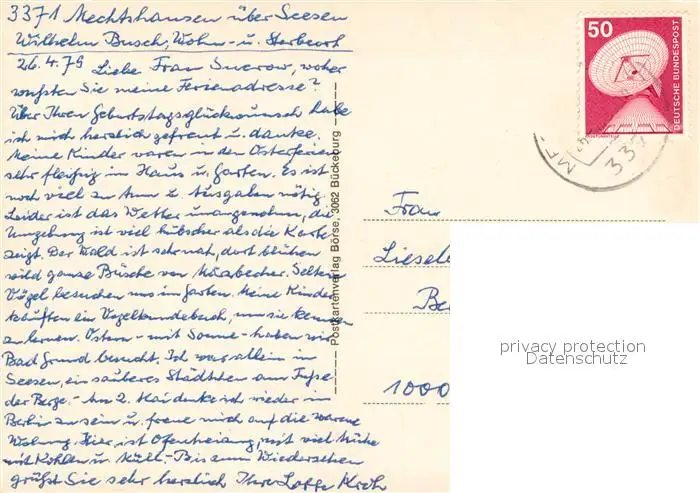 3371 Mechtshausen über Seesen
Wilhelm Busch, Wohn- u. Sterbeort
26.4.79 Liebe Frau Suerow, woher
wußten Sie meine Ferienadresse?
Über Ihren Geburtstagsglückwunsch habe
ich mich herzlich gefreut u. danke.
Meine Kinder waren in den Osterferien
sehr fleißig im Haus u. Garten. Es ist
noch viel zu tun u. Ausgaben nötig.
Leider ist das Wetter unangenehm, die
Umgebung ist viel hübscher als die Karte
zeigt. Der Wald ist sehr nah, dort blühen
wild ganze Büsche von Märzbecher. Seltene
Vögel besuchen uns im Garten. Meine Kinder
kauften ein Vogelkundebuch, um sie kennen
zu lernen. Ostern - mit Sonne - haben wir
Bad Grund besucht. Ich war allein in
Seesen, ein sauberes Städtchen am Fuße
der Berge. - Am 2. Mai denke ich wieder in
Berlin zu sein u. freue mich auf die warme
Wohnung. Hier ist Ofenheizung, mit viel Mühe
mit Kohlen u. Müll. - Bis zum Wiedersehen
grüßt Sie sehr herzlich Ihre Lotte
Postkartenverlag Börse, 3062 Bückeburg
50
DEUTSCHE BUNDESPOST
337
Frau
Liesel
Be
1000
privacy protection
Datenschutz